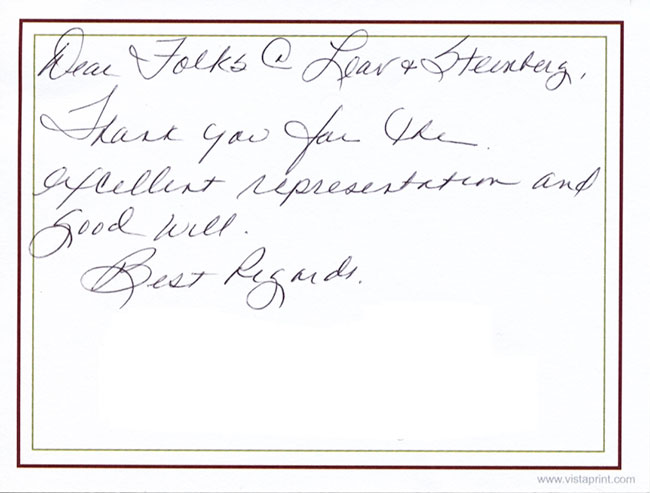 Dear Folks @ Leav & Steinberg,
Thank you for the
excellent representation and
good will.
Best Regards.
www.vistaprint.com